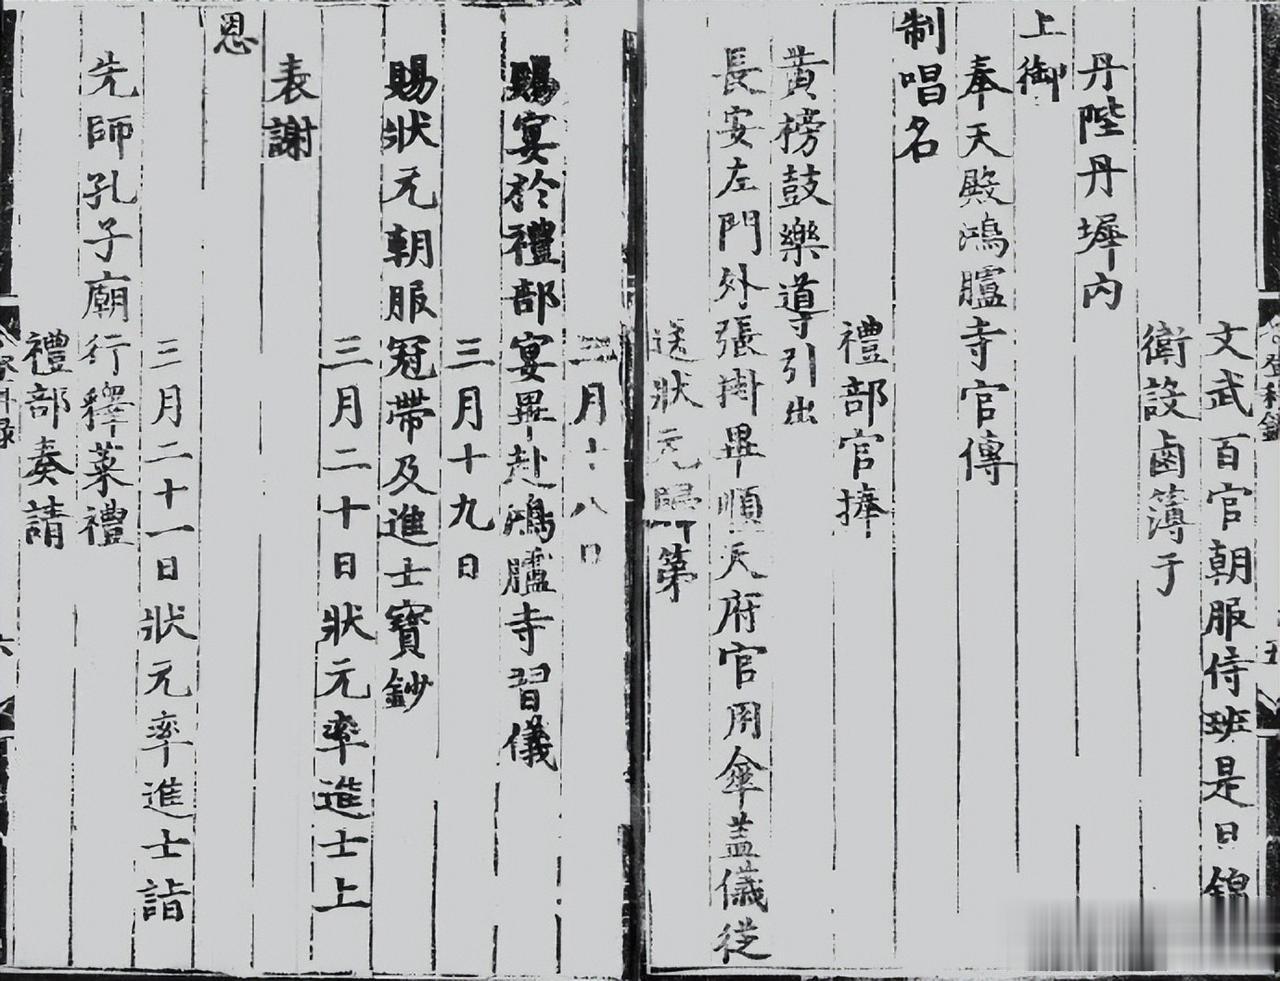 文武百官朝服侍班是日錦
衛設鹵簿于
丹陛丹墀內
上御
奉天殿鴻臚寺官傳
制唱名
禮部官捧
黃榜鼓樂導引出
長安左門外張掛畢順天府官用傘盖儀從
送狀元歸第
三月十八日
賜宴於禮部宴畢赴鴻臚寺習儀
三月十九日
賜狀元朝服冠帶及進士寶鈔
三月二十日狀元率進士上
表謝
恩
三月二十一日狀元率進士詣
先師孔子廟行釋菜禮
禮部奏請